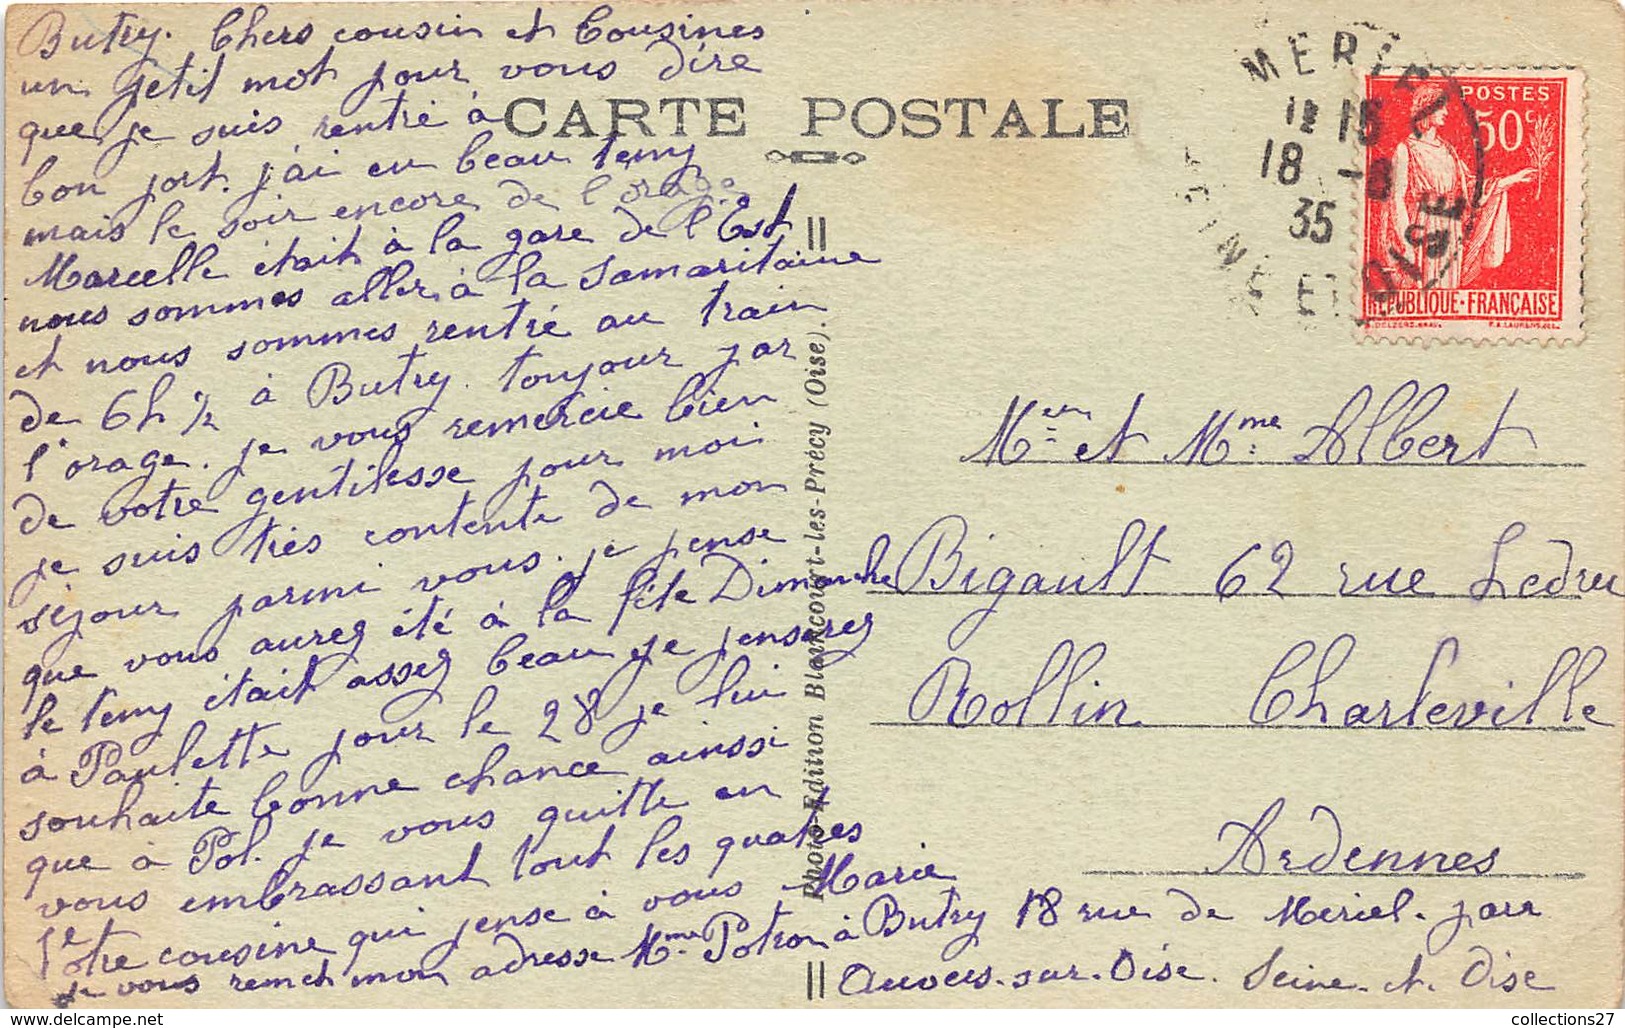 Butry. Chers cousin et Cousines
un petit mot pour vous dire
que je suis rentré à
bon port. j'ai eu beau temp
mais le soir encore de l'orage
Marcelle était à la gare de l'Est
nous sommes aller à la Samaritaine
et nous sommes rentré au train
de 6h ½ à Butry. toujour par
l'orage. je vous remercie bien
de votre gentilesse pour moi
je suis très contente de mon
séjour parmi vous. je pense
que vous aurez été à la fête Dimanche
le temp était assez beau je penserez
à Paulette pour le 28 je lui
souhaite bonne chance ainssi
que à Pol. je vous quitte en
vous embrassant tout les quatres
Votre cousine qui pense à vous Marie
je vous remet mon adresse Mme Potron à Butry 18 rue de Meriel. par
Auvers-sur-Oise. Seine-et-Oise
CARTE POSTALE
Photo-Edition Blancourt-les-Précy (Oise).
MERIEL
18 -8
35
SEINE ET OISE
POSTES
50c
REPUBLIQUE-FRANÇAISE
Mr et Mme Albert
Bigault 62 rue Ledru
Rollin Charleville
Ardennes
collections27